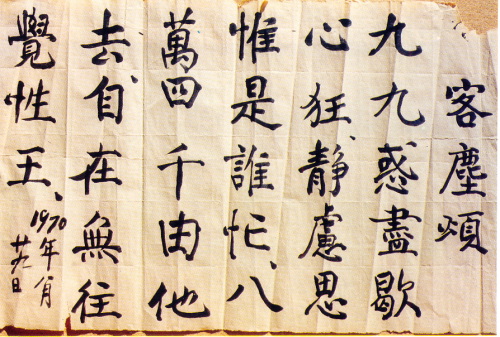 客塵頌
九九惑盡歇
心狂、靜慮思
惟是誰忙、八
萬四千由他
去、自在無往
覺性王、
1970年月
廿九日